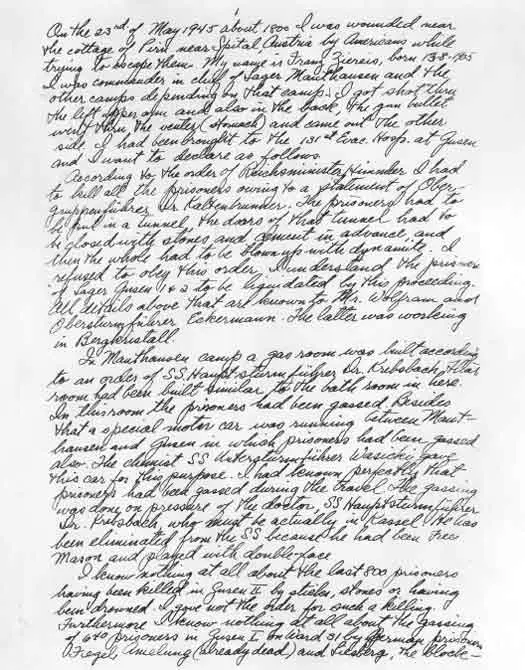 1
On the 23rd of May 1945 about 1800 I was wounded near
the cottage of Pirn near Spital Austria by Americans while
trying to escape them. My name is Franz Ziereis, born 13-8-1905
I was commander in chief of Lager Mauthausen and the
other camps depending by that camp. I got shot thru
the left upper arm and also in the back the gun bullet
went thru the venter (Stomach) and came out the other
side. I had been brought to the 131st Evac. Hosp. at Gusen
and I want to declare as follows.
According to the order of Reichsminister Himmler I had
to kill all the prisoners owing to a statement of Ober-
gruppenführer Dr. Kaltenbrunner. The prisoners had to
be put in a tunnel, the doors of that tunnel had to
be closed with stones and cement in advance, and
then the whole had to be blown up with dynamite. I
refused to obey this order. I understand the prisoners
of Lager Gusen 1 & 2 to be liquidated by this proceeding.
All details above that are known for Mr. Wolfram and
Obersturmführer Eckermann. The latter was working
in Bergkristall.
In Mauthausen camp a gas room was built according
to an order of SS Hauptsturmführer Dr. Krebsbach, that
room had been built similar to the bath room in here.
In this room the prisoners had been gassed. Besides
that a special motor car was running between Maut-
hausen and Gusen in which prisoners had been gassed
also. The chemist SS Untersturmführer Wasicky gave
this car for this purpose. I had known perfectly that
prisoners had been gassed during the travel. The gassing
was done on pressure of the doctor, SS Hauptsturmführer
Dr. Krebsbach, who must be actually in Kassel. He has
been eliminated from the SS because he had been Free
Mason and played with double-face.
I know nothing at all about the last 800 prisoners
having been killed in Gusen II by sticks, stones or having
been drowned. I gave not the order for such a killing.
Furthermore I know nothing at all about the gassing
of 640 prisoners in Gusen I on ward 31 by German prisoners
Amelung (already dead) and the blocke-